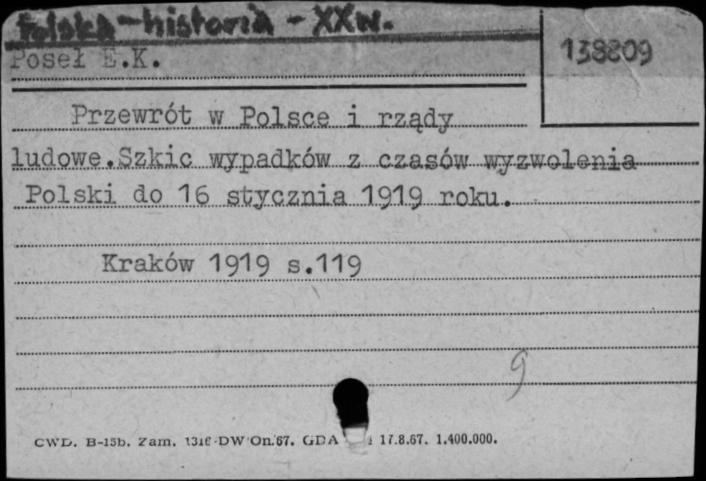 Polska - historia - XXw.
138809
Poseł E.K.
Przewrót w Polsce i rządy
ludowe.Szkic wypadków z czasów wyzwolenia
Polski do 16 stycznia 1919 roku.
Kraków 1919 s.119
9
CWD. B-15b. Zam. 1316 DW On.67. GDA 17.8.67. 1.400.000.